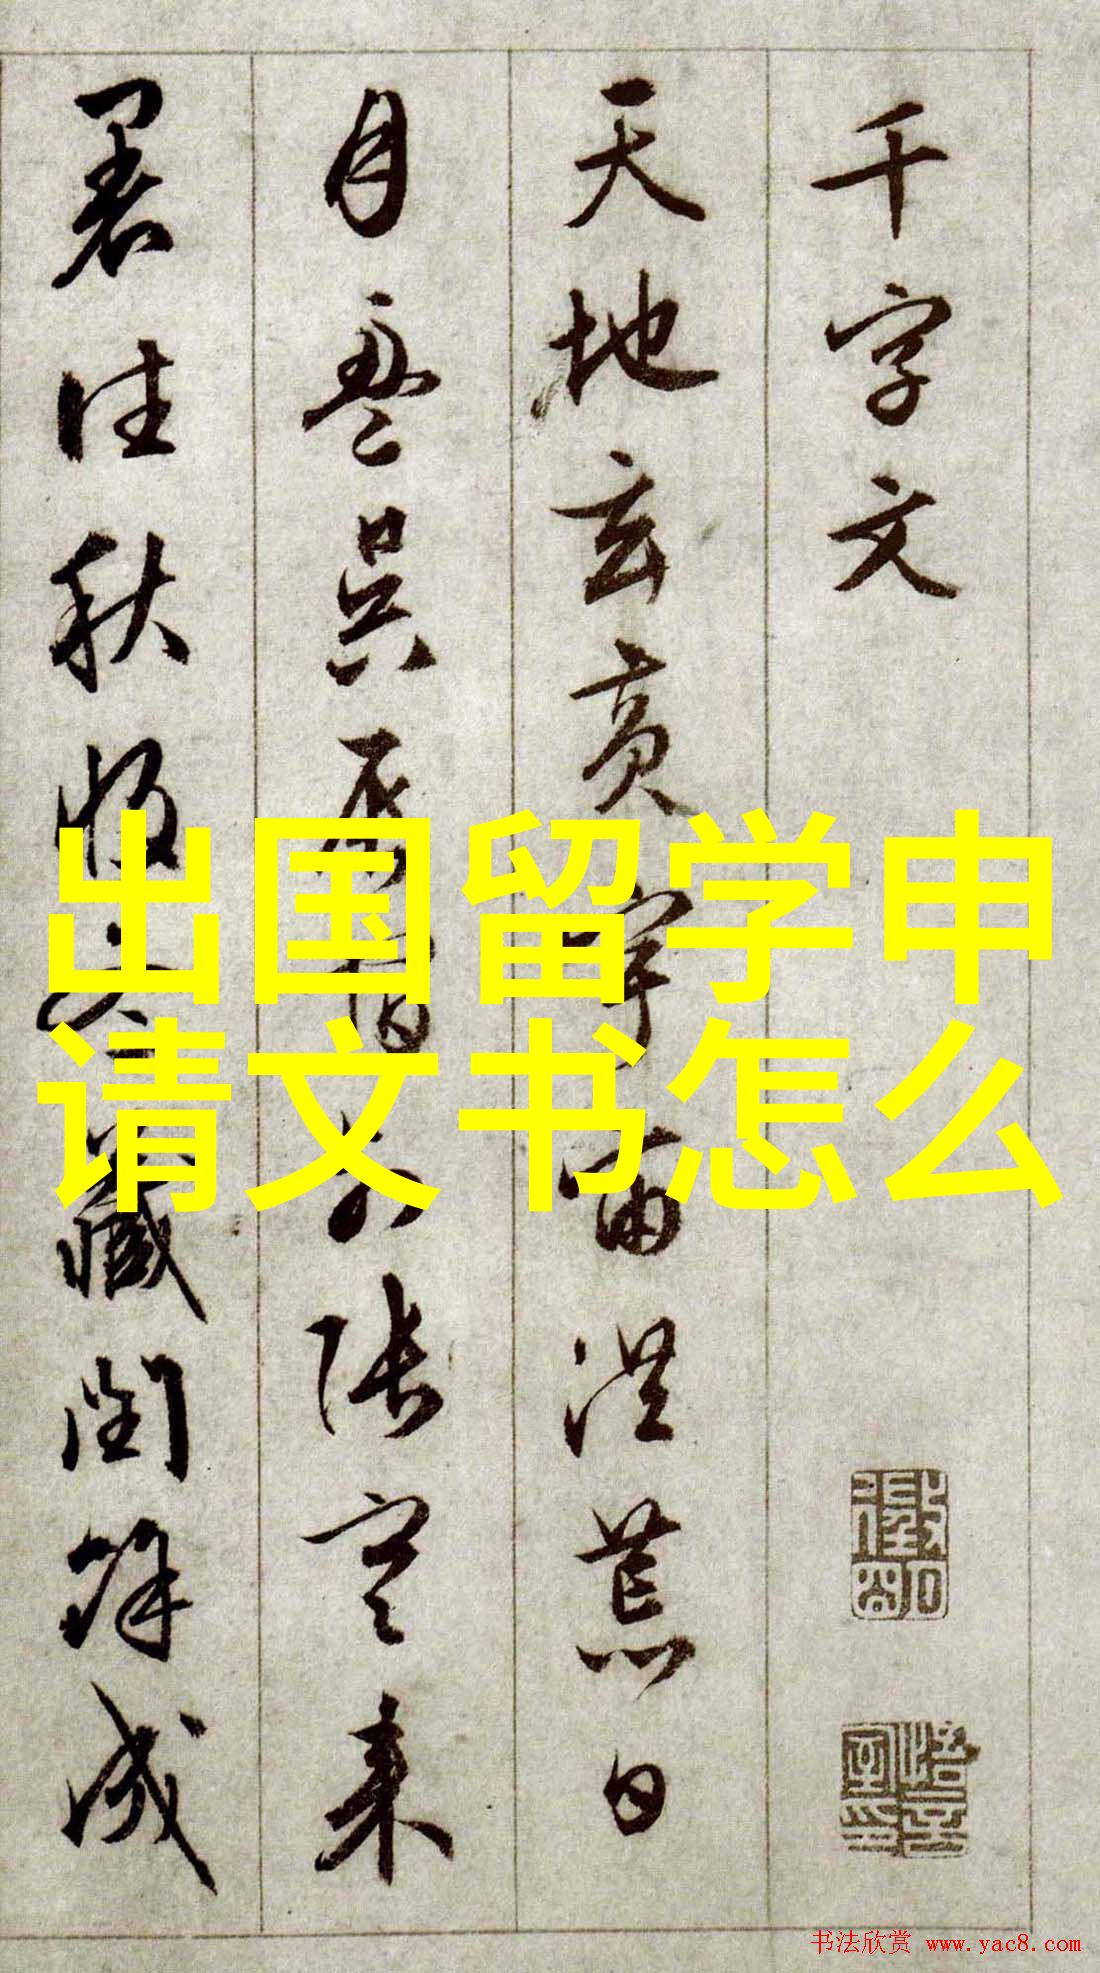 千字文
天地玄黄宇宙洪荒日
月盈昃辰宿列張寒来
暑往秋收冬藏閏餘成
出国留学申
请文书怎么
书法欣赏 www.yac8.com